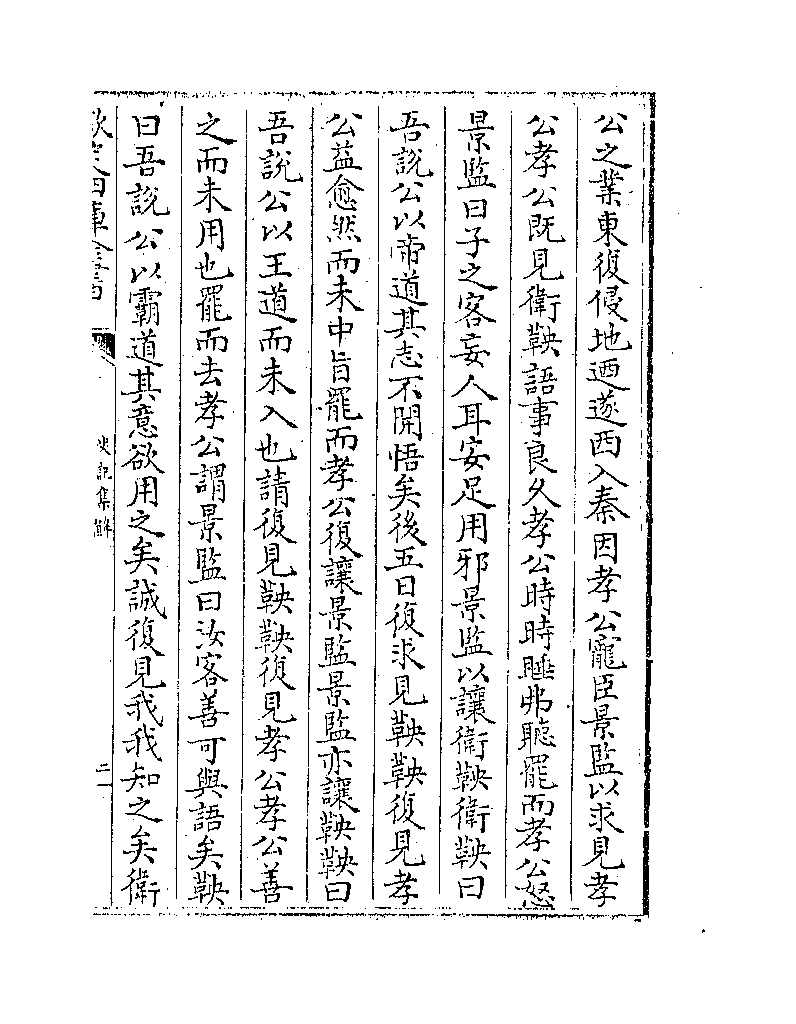 公之業東復侵地迺遂西入秦因孝公寵臣景監以求見孝
公孝公既見衛鞅語事良久孝公時時睡弗聽罷而孝公怒
景監曰子之客妄人耳安足用邪景監以讓衛鞅衛鞅曰
吾說公以帝道其志不開悟矣後五日復求見鞅鞅復見孝
公益愈然而未中旨罷而孝公復讓景監景監亦讓鞅鞅曰
吾說公以王道而未入也請復見鞅鞅復見孝公孝公善
之而未用也罷而去孝公謂景監曰汝客善可與語矣鞅
曰吾說公以霸道其意欲用之矣誠復見我我知之矣衛
欽定四庫全書
史記集解
二